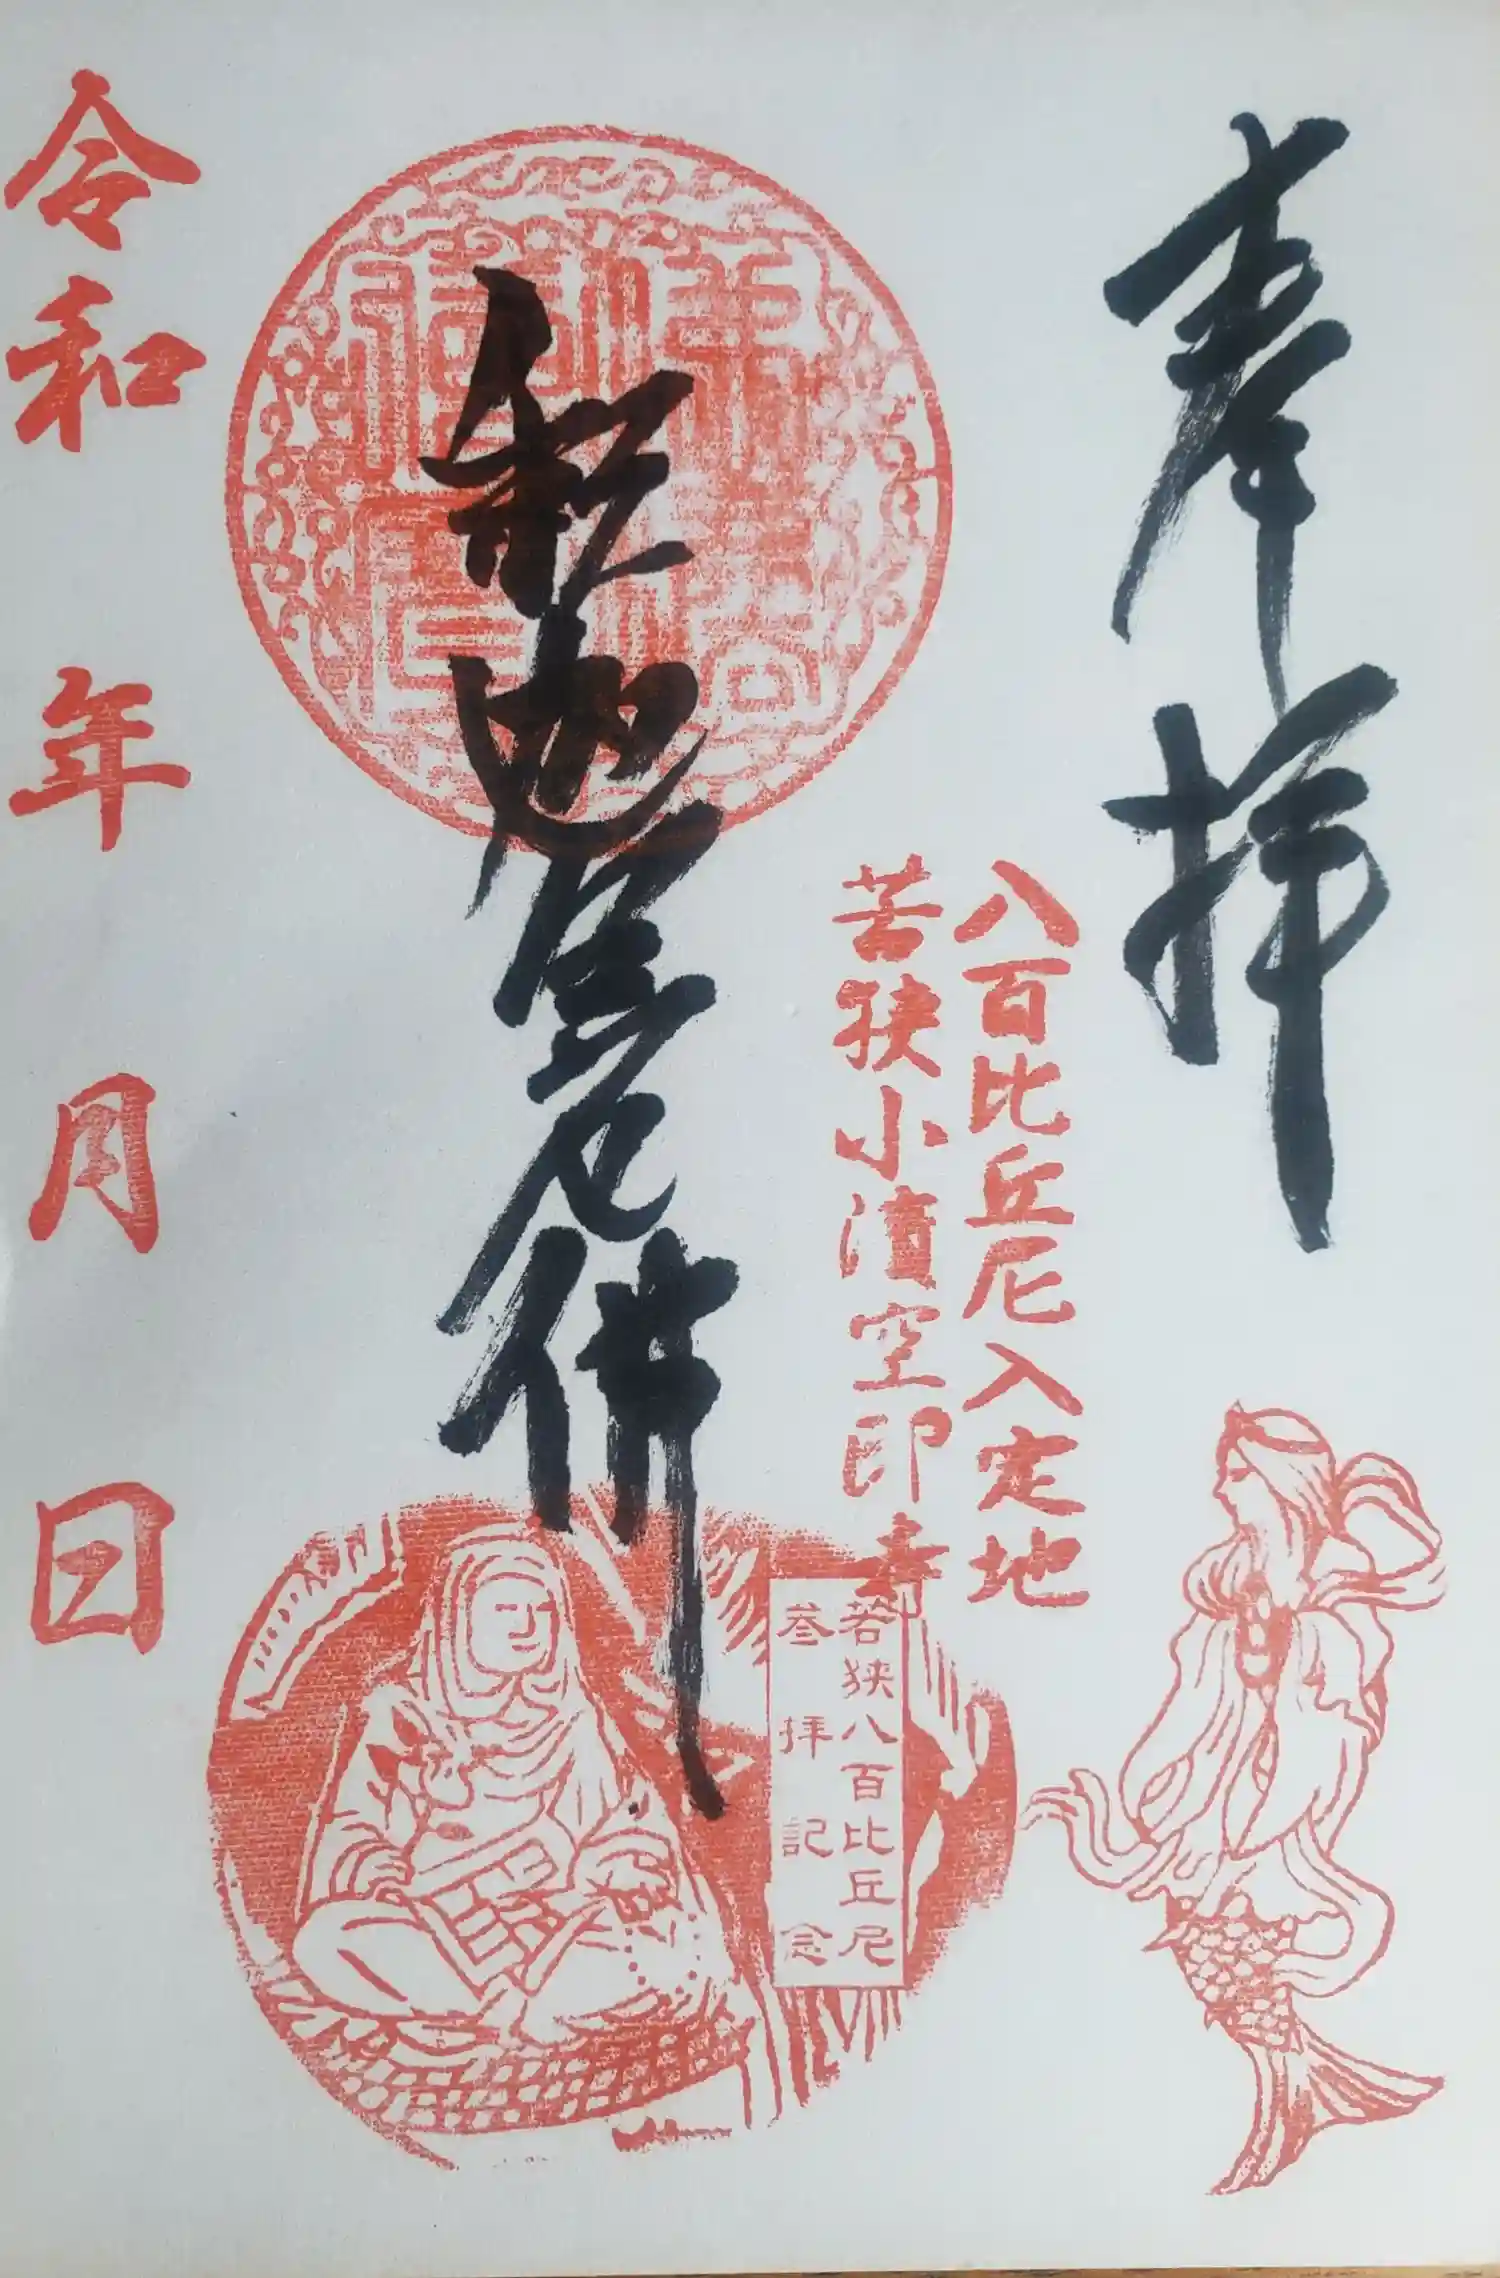 奉拝
八百比丘尼入定地
若狭小濱空印寺
若狭八百比丘尼
参拝記念
釈迦牟尼佛
令和 年 月 日